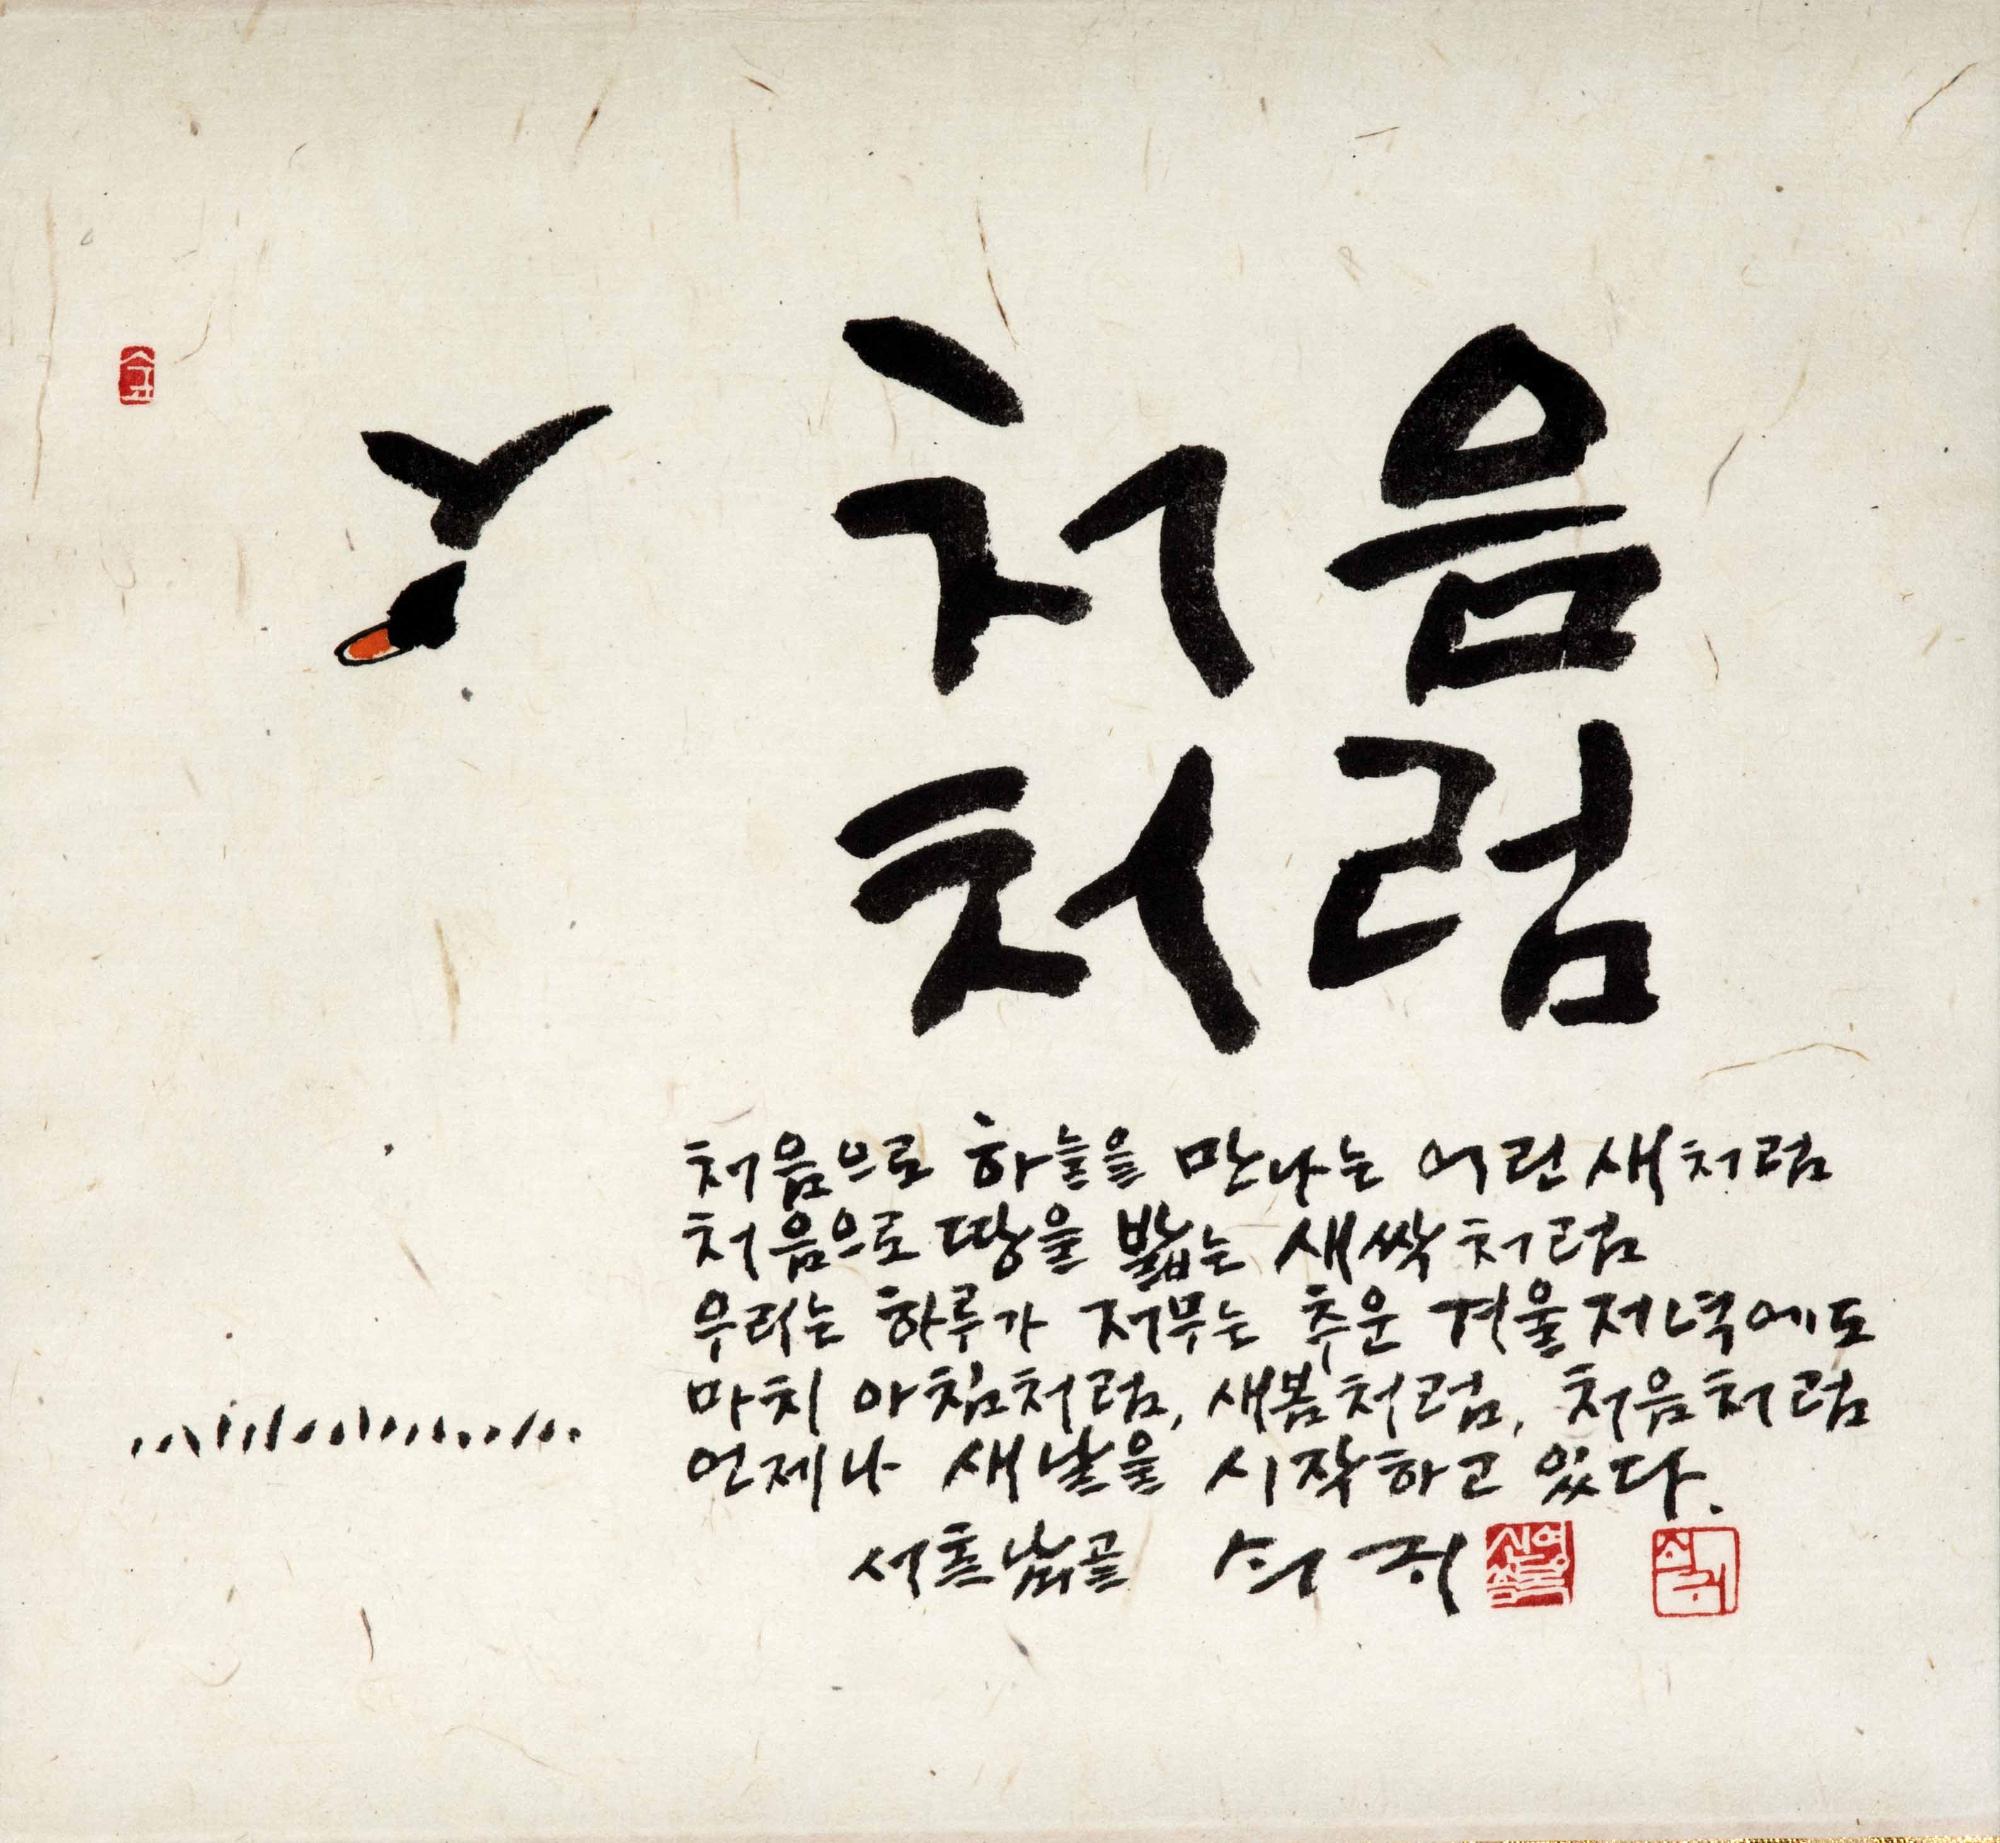 처음
처럼
처음으로 하늘을 만나는 어린새처럼
처음으로 땅을 밟는 새싹처럼
우리는 하루가 저무는 추운 겨울저녁에도
마치 아침처럼, 새봄처럼, 처음처럼
언제나 새날을 시작하고 있다.